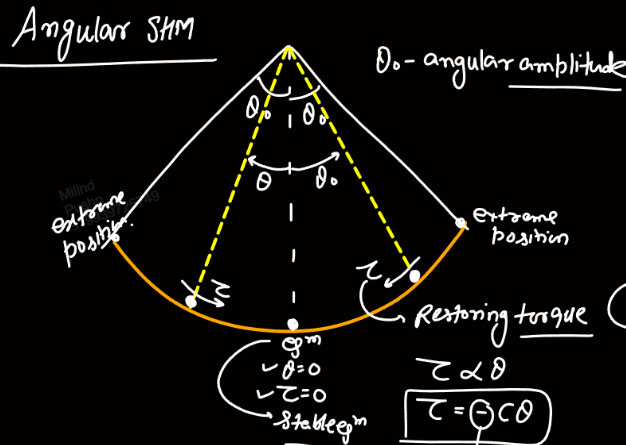 Angular SHM
θ₀ - angular amplitude
θ₀ θ₀
θ θ₀
Milind
extreme
position
extreme
position
τ τ
Restoring torque
eqᵐ
✓ θ=0
✓ τ=0
Stable eqᵐ
τ ∝ θ
τ = ⊖Cθ